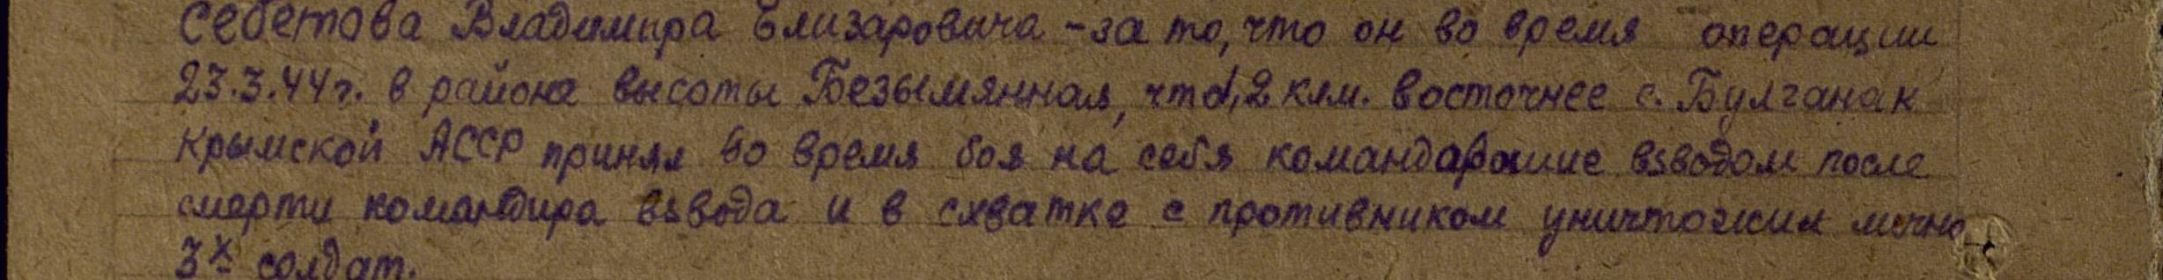 Себетова Владимира Елизаровича - за то, что он во время операции
23.3.44 г. в районе высоты Безымянная, что 1,2 клм. восточнее с. Булганак
Крымской АССР принял во время боя на себя командование взводом после
смерти командира взвода и в схватке с противником уничтожил лично
3х солдат.